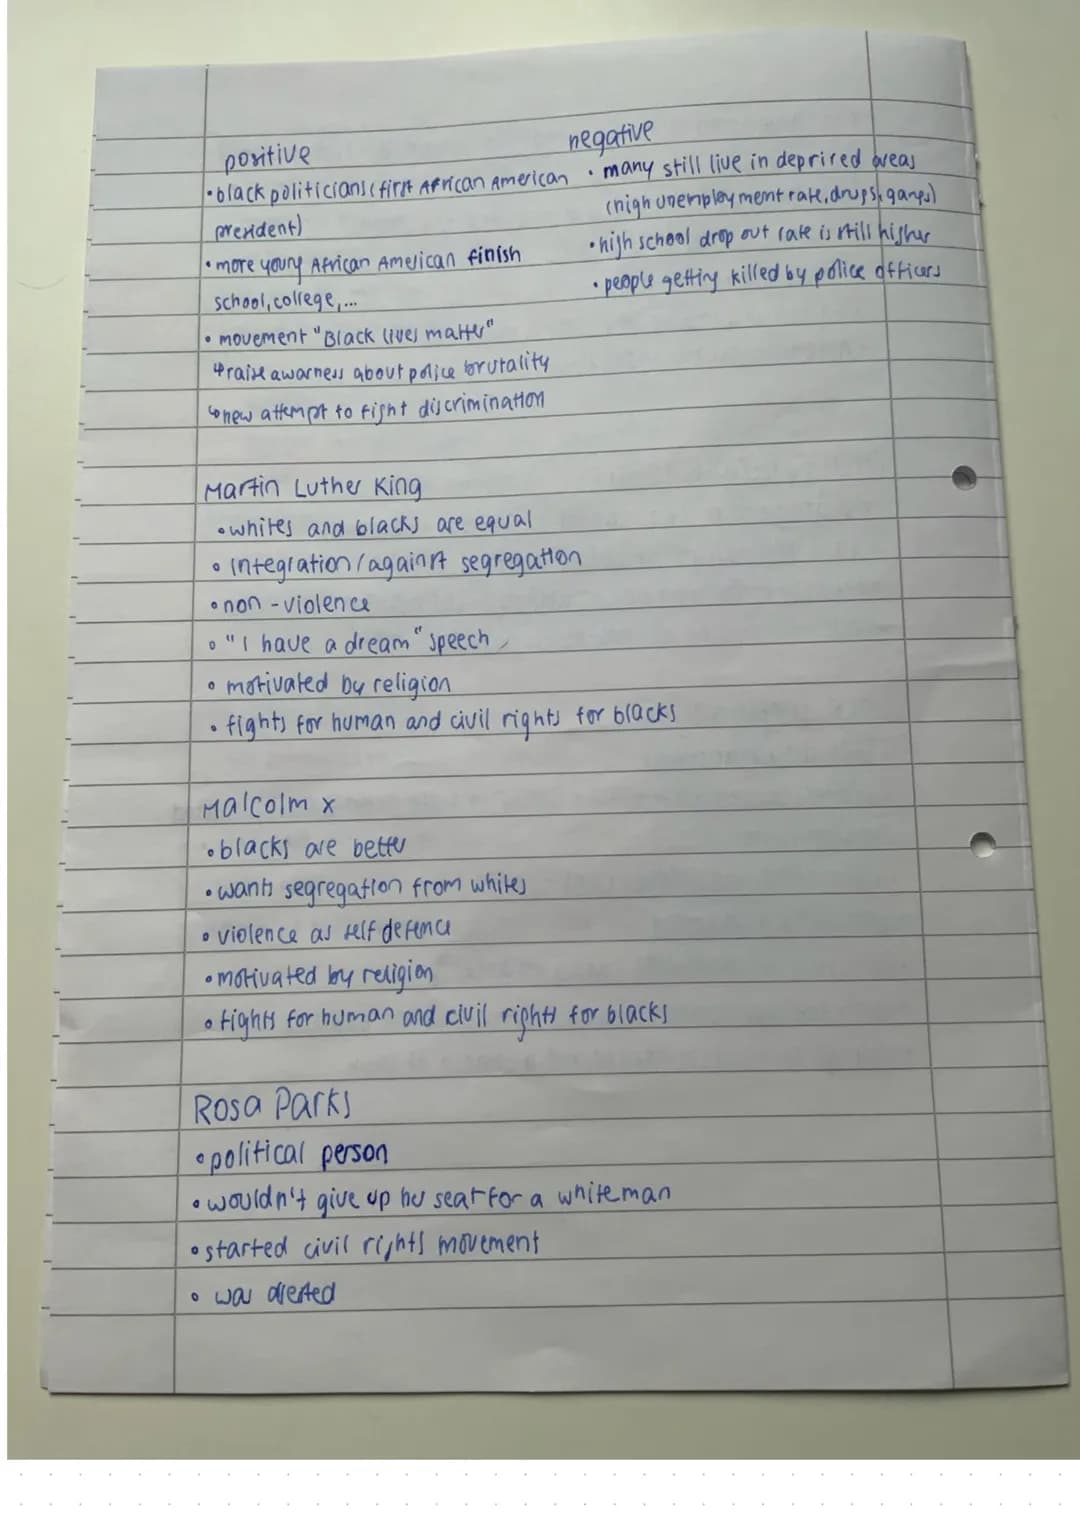 positive
negative
•black politicians (first African American
president)
• more young African American finish
school, college,...
• movement "Black lives matter"
↳raise awarness about police brutality
↳new attempt to fight discrimination
• many still live in deprired areas
(high unemployment rate, drugs, gangs)
•high school drop out rate is still higher
• people getting killed by police officers
Martin Luther King
•whites and blacks are equal
• integration/against segregation
•non-violence
• "I have a dream" speech
• motivated by religion
• fights for human and civil rights for blacks
Malcolm x
•blacks are better
•wants segregation from whites
• violence as self defence
•motivated by religion
• fights for human and civil rights for blacks
Rosa Parks
•political person
•wouldn't give up her seat for a white man
•started civil rights movement
• was arested